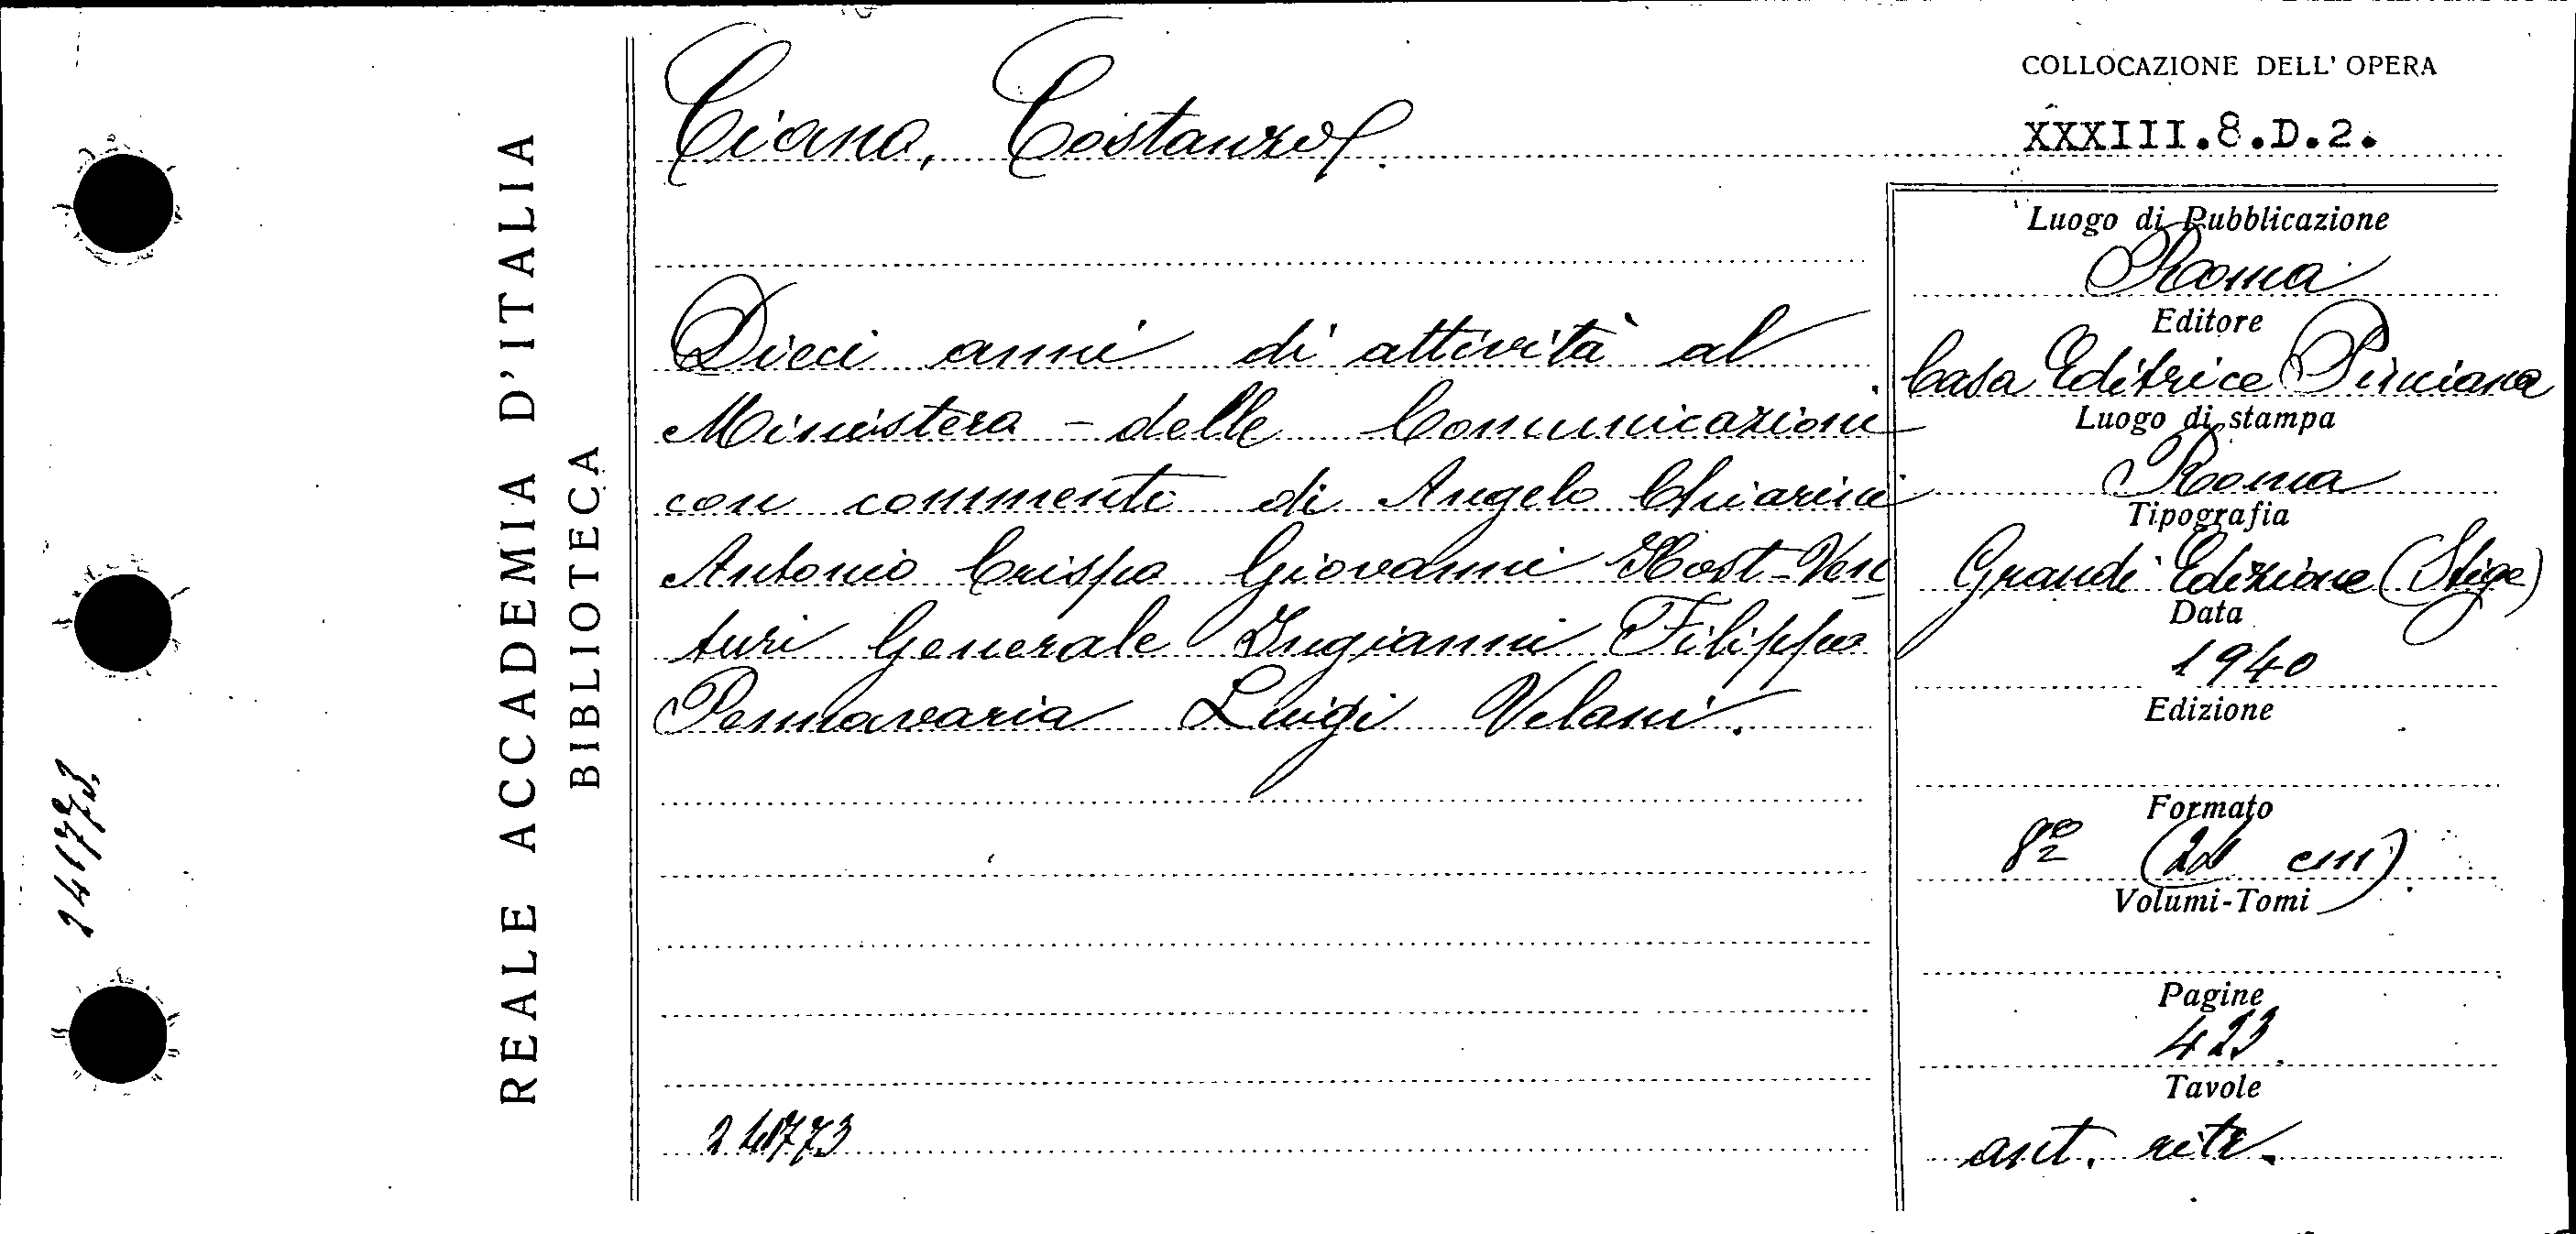 Ciano, Costanzo.
COLLOCAZIONE DELL' OPERA
XXXIII.8.D.2.
REALE ACCADEMIA D'ITALIA
BIBLIOTECA
Dieci anni di attività al
Ministero - delle Comunicazioni
con commento di Angelo Chiarini
Antonio Crispo Giovanni Host-Ven
turi Generale Ingianni Filippo
Pennavaria Luigi Velani.
24773
24773
Luogo di Pubblicazione
Roma
Editore
Casa Editrice Pinciana
Luogo di stampa
Roma
Tipografia
Grandi Edizione (Stige)
Data
1940
Edizione
Formato
8º (2 cm)
Volumi-Tomi
Pagine
423
Tavole
ant. ritr.